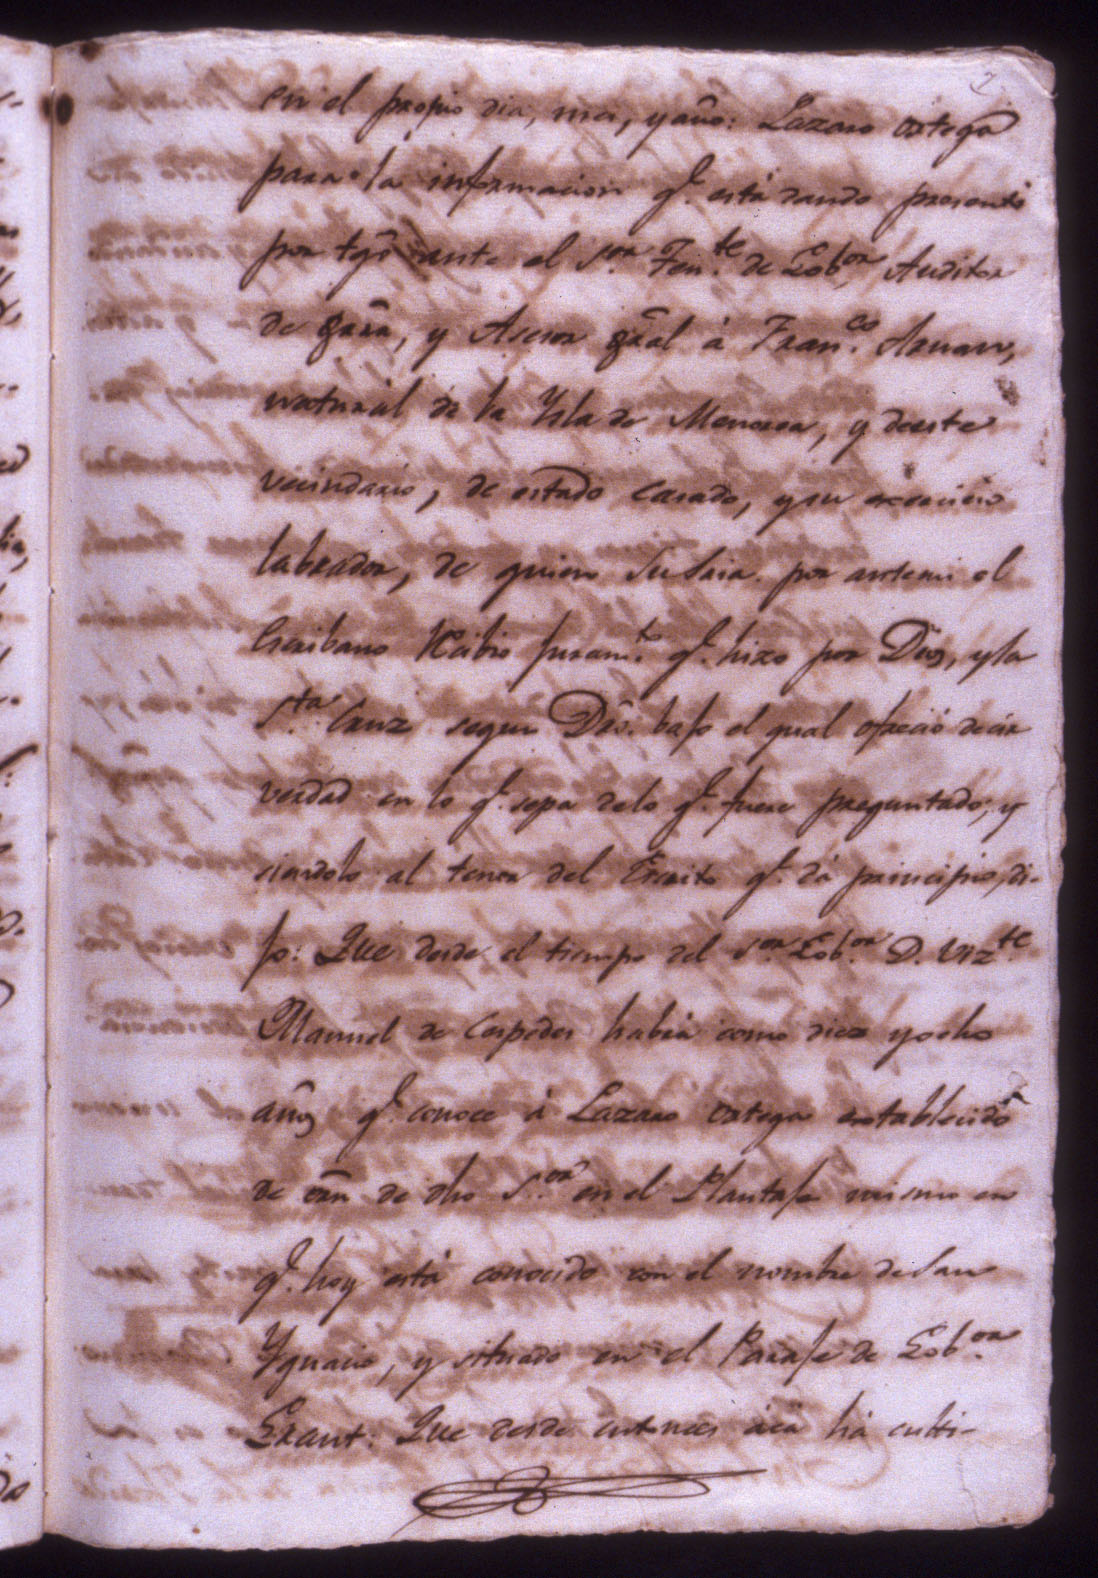 2
en el propio dia, mes, y año: Lazaro Ortega
para la informacion q.e está dando presentó
por tgô ante el S.or Ten.te de Gob.or Auditor
de Grâ, y Asesor gral á Fran.co Arnau,
natural de la Ysla de Menorca, y deeste
vecindario, de estado Casado, y su exercicio
labrador, de quien Su Sria. por antemi el
Escribano Recibio juram.to q.e hizo por Dios, y la
S.ta Cruz segun Dro. bajo el qual ofrecio decir
verdad en lo q.e sepa delo q.e fuere preguntado; y
siendolo al tenor del Escrito q.e dá principio, di-
jo: Que desde el tiempo del S.or Gob.or D. Viz.te
Manuel de Cespedes habrá como diez yocho
años q.e conoce á Lazaro Ortega establecido
de orñ de dho S.or en el Plantaje mismo en
q.e hoy está conocido con el nombre deSan
Ygnacio, y situado en el Paraje de Gob.or
Grant: Que desde entonces acá há culti-